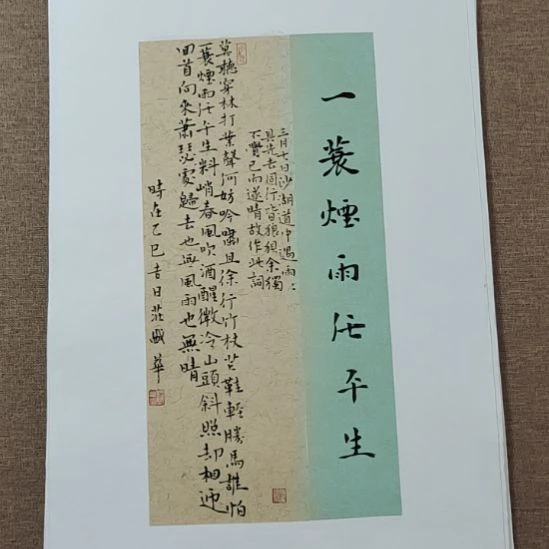 一蓑煙雨任平生
三月七日沙湖道中遇雨雨
具先去同行皆狼狽余獨
不覺已而遂晴故作此詞
莫聽穿林打葉聲何妨吟嘯且徐行竹杖芒鞋輕勝馬誰怕
一蓑煙雨任平生料峭春風吹酒醒微冷山頭斜照却相迎
回首向來蕭瑟處歸去也無風雨也無晴
時在乙巳吉日莊盛華